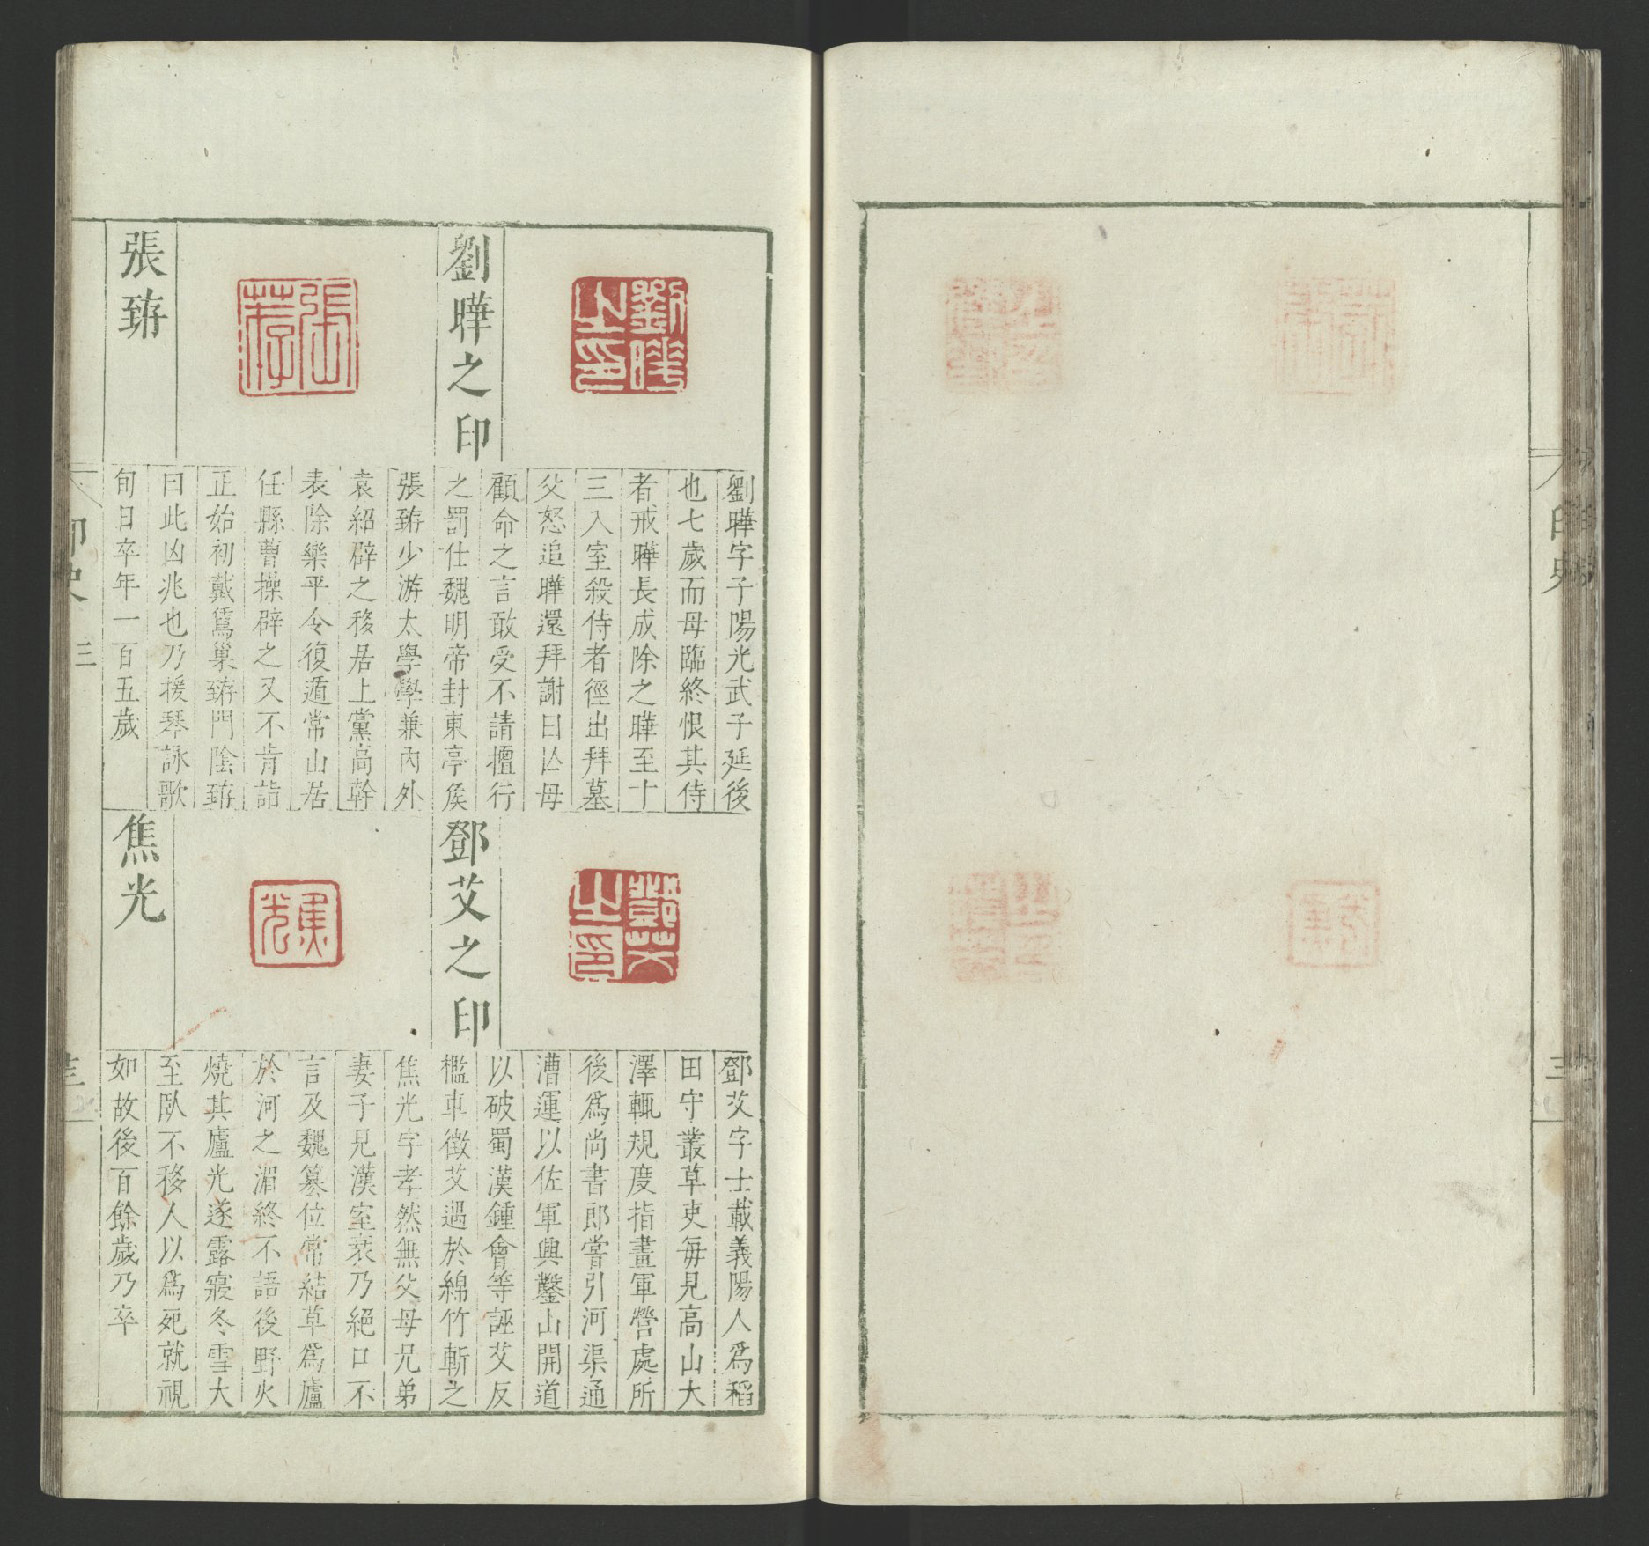 劉曄之印
劉曄字子陽光武子延後
也七歲而母臨終恨其侍
者戒曄長成除之曄至十
三入室殺侍者徑出拜墓
父怒追曄還拜謝曰亾母
顧命之言敢受不請擅行
之罰仕魏明帝封東亭矦
張臶
張臶少游太學學兼內外
袁紹辟之移居上黨高幹
表除樂平令復遁常山居
任縣曹操辟之又不肯詣
正始初戴鵀巢臶門陰臶
曰此凶兆也乃援琴詠歌
旬日卒年一百五歲
鄧艾之印
鄧艾字士載義陽人爲稻
田守叢草吏每見高山大
澤輒規度指畫軍營處所
後爲尚書郎嘗引河渠通
漕運以佐軍興鑿山開道
以破蜀漢鍾會等誣艾反
檻車徴艾遇於綿竹斬之
焦光
焦光字孝然無父母兄弟
妻子見漢室衰乃絕口不
言及魏篡位常結草爲廬
於河之湄終不語後野火
燒其廬光遂露寢冬雪大
至臥不移人以爲死就視
如故後百餘歲乃卒
印史
三